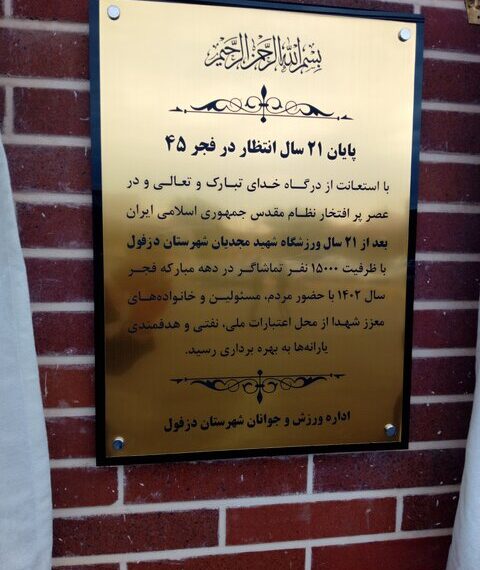 بسم الله الرحمن الرحیم
پایان ۲۱ سال انتظار در فجر ۴۵
با استعانت از درگاه خدای تبارک و تعالی و در
عصر پر افتخار نظام مقدس جمهوری اسلامی ایران
بعد از ۲۱ سال ورزشگاه شهید مجدیان شهرستان دزفول
با ظرفیت ۱۵۰۰۰ نفر تماشاگر در دهه مبارکه فجر
سال ۱۴۰۲ با حضور مردم، مسئولین و خانواده‌های
معزز شهدا از محل اعتبارات ملی، نفتی و هدفمندی
یارانه‌ها به بهره برداری رسید.
اداره ورزش و جوانان شهرستان دزفول